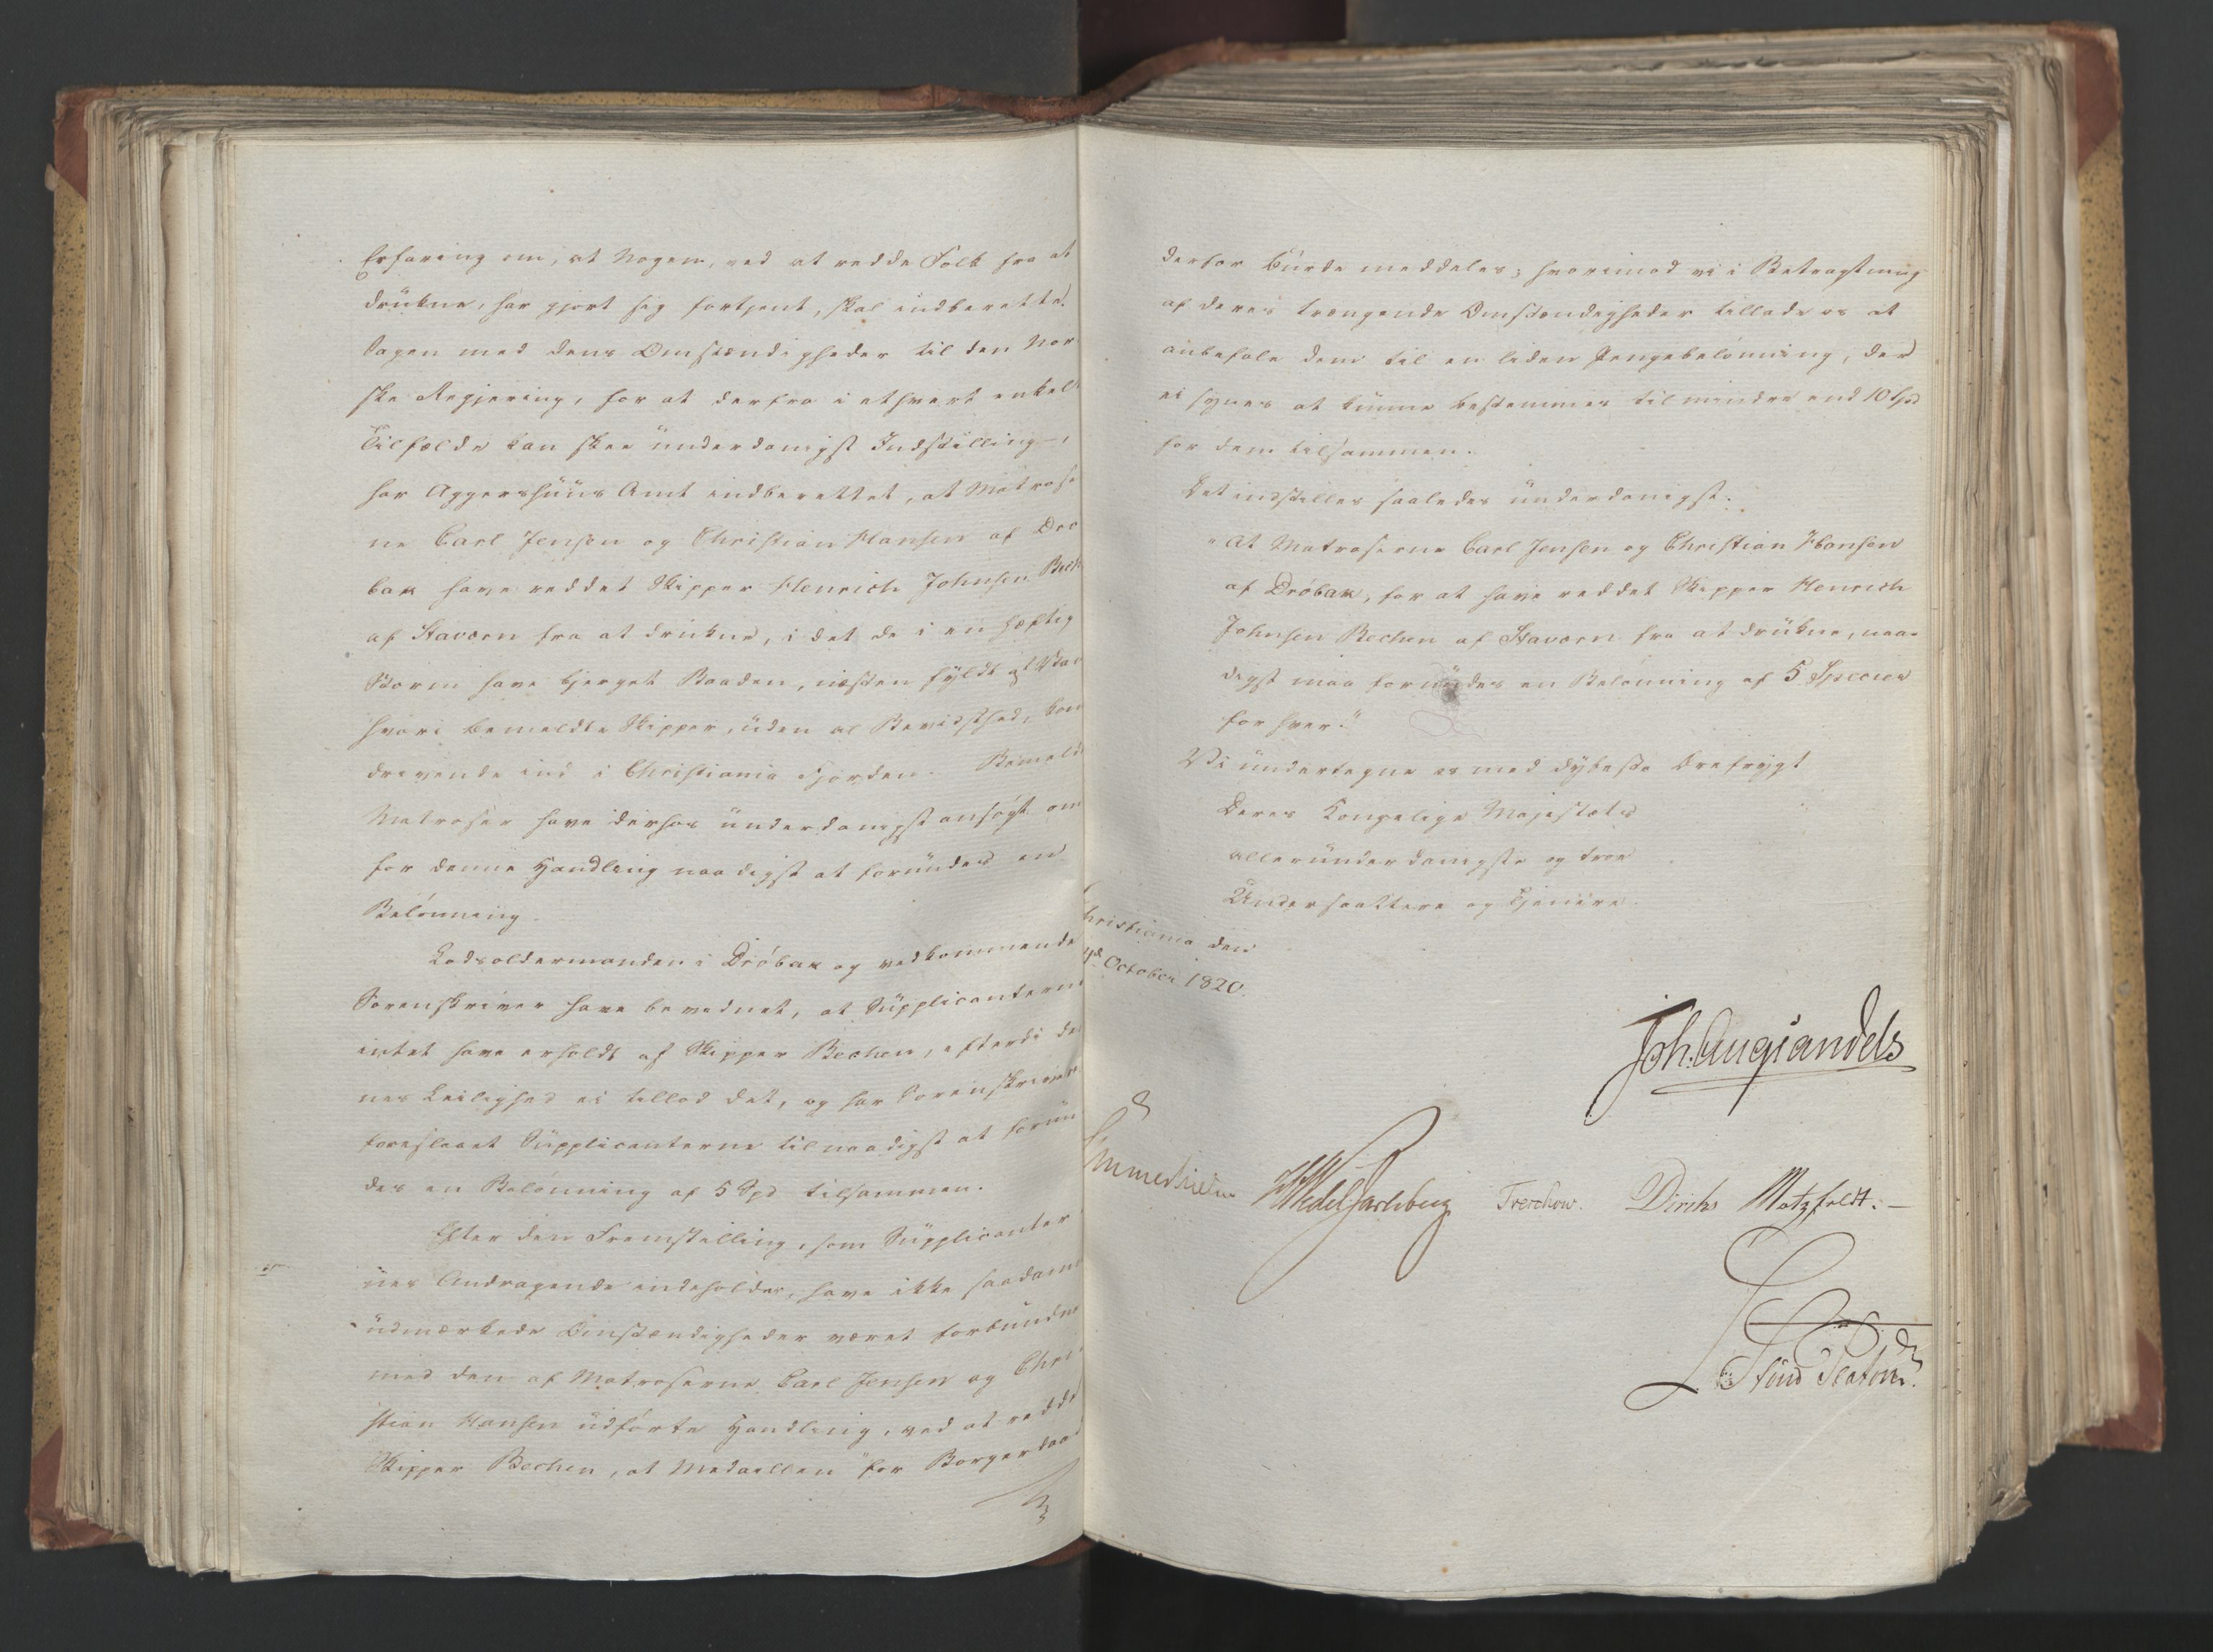 Erfaring om, at Nogen, ved at redde Folk fra at
drukne, har gjort sig fortjent, skal indberette
Sagen med dens Omstændigheder til den Nor-
ske Regjering, for at derfra i ethvert enkelt
Tilfælde kan skee underdanigst Indstilling,
har Aggershuus Amt indberettet, at Matroser-
ne Carl Jensen og Christian Hansen af Drø-
bak have reddet Skipper Henrich Johnsen Bech
af Staværn fra at drukne, i det de i en heftig
Storm have bjerget Baaden, næsten fyldt af Van
hvori bemeldte Skipper, uden al Bevidsthed, kom
drivende ind i Christiania Fjorden. Bemeldte
Matroser have derhos underdanigst ansøgt om
for denne Handling naadigst at forundes en
Belønning.
Lodsoldermanden i Drøbak og vedkommende
Sorenskriver have bevidnet, at Supplicanterne
intet have erholdt af Skipper Bechen, efterdi den-
nes Leilighed ei tillod det, og har Sorenskriveren
foreslaaet Supplicanterne til naadigst at forun-
des en Belønning af 5 Spd tilsammen.
Efter den Fremstilling, som Supplicanter-
nes Andragende indeholder, have ikke saadanne
udmærkede Omstændigheder været forbundne
med den af Matroserne Carl Jensen og Chri-
stian Hansen udførte Handling, ved at redde
Skipper Bechen, at Medaillen "for Borgerdaad"
derfor burde meddeles; hvorimod vi i Betragtning
af deres trængende Omstændigheder tillade os at
anbefale dem til en liden Pengebelønning, der
ei synes at kunne bestemmes til mindre end 10 Spd
for dem tilsammen.
Det indstilles saaledes underdanigst:
"At Matroserne Carl Jensen og Christian Hansen
af Drøbak, for at have reddet Skipper Henrich
Johnsen Bechen af Staværn fra at drukne, naa-
digst maa forundes en Belønning af 5 Species
for hver."
Vi undertegne os med dybeste Ærefrygt
Deres Kongelige Majestæts
allerunderdanigste og troe
Undersaattere og Tjenere.
Christiania den
October 1820.
Joh. Aug. Sandels
Sommerhielm HWedel Jarlsberg Treschow. Diriks Motzfeldt.